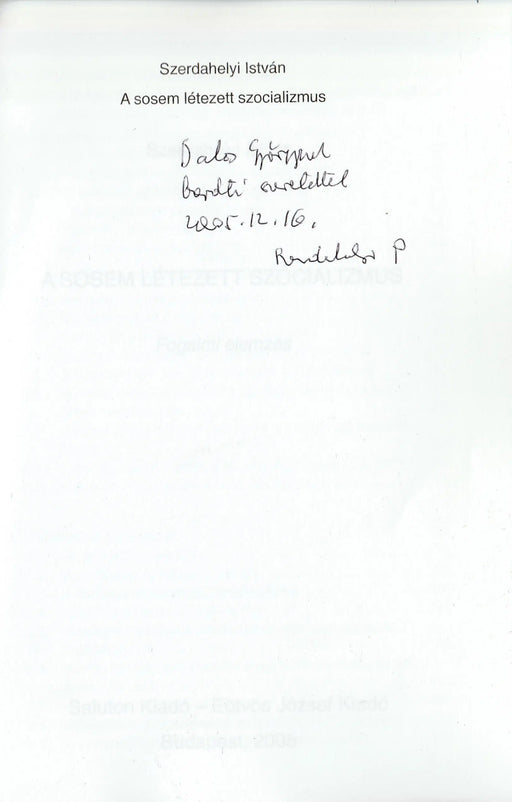 Szerdahelyi István
A sosem létezett szocializmus
Dalos Györgynek
baráti szeretettel
2005.12.16.
A SOSEM LÉTEZETT SZOCIALIZMUS
Fogalmi elemzés
Saluton Kiadó – Eötvös József Kiadó
Budapest, 2005